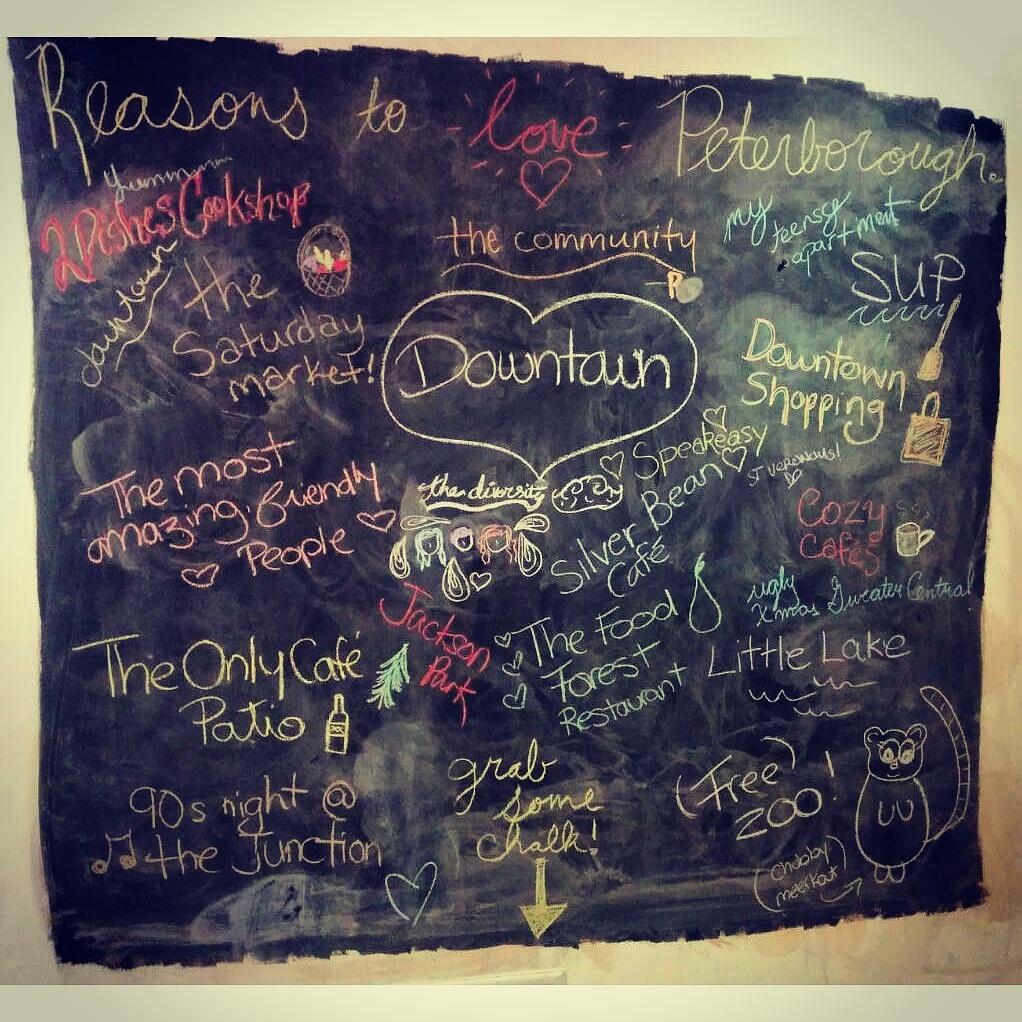 Reasons to love Peterborough.
Yummmm
2 Dishes Cookshop
downtown
the
Saturday
market!
the community
my
teensy
apartment
SUP
Downtown
Downtown
Shopping
The most
amazing, friendly
People
the diversity
Speakeasy
ST VERONUS!
Silver Bean
Café
Cozy
Cafés
ugly
Xmas Sweater Central
Jackson
Park
The Food
Forest
Restaurant
Little Lake
The Only Café
Patio
90s night @
the Junction
grab
some
chalk!
(Free)
ZOO!
(chubby
meerkat)